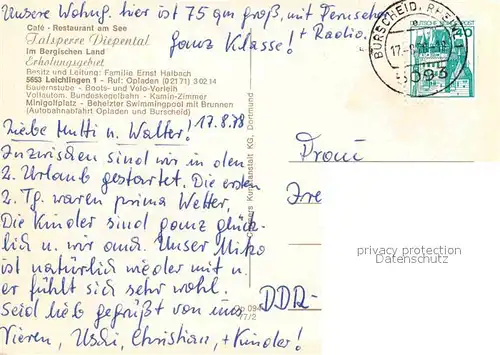 Unsere Wohng. hier ist 75 qm groß, mit Fernseher
+ Radio.
Ganz Klasse!
Café - Restaurant am See
Talsperre Diepental
Im Bergischen Land
Erholungsgebiet
Besitz und Leitung: Familie Ernst Halbach
5653 Leichlingen 1 - Ruf: Opladen (0 21 71) 3 02 14
Bauernstube - Boots- und Velo-Verleih
Vollautom. Bundeskegelbahn - Kamin-Zimmer
Minigolfplatz - Beheizter Swimmingpool mit Brunnen
(Autobahnabfahrt Opladen und Burscheid)
BURSCHEID, RHEINL 1
5093
DEUTSCHE BUNDESPOST
Liebe Mutti u. Walter! 17.8.78
Inzwischen sind wir in den
2. Urlaub gestartet. Die ersten
2. Tg. waren prima Wetter.
Die Kinder sind ganz glück-
lich u. wir auch. Unser Mirko
ist natürlich wieder mit u.
er fühlt sich sehr wohl.
Seid lieb gegrüßt von uns
Vieren, Uschi, Christian, + Kinder!
Kunstanstalt KG, Dortmund
77/2
Frau
DDR-
privacy protection
Datenschutz